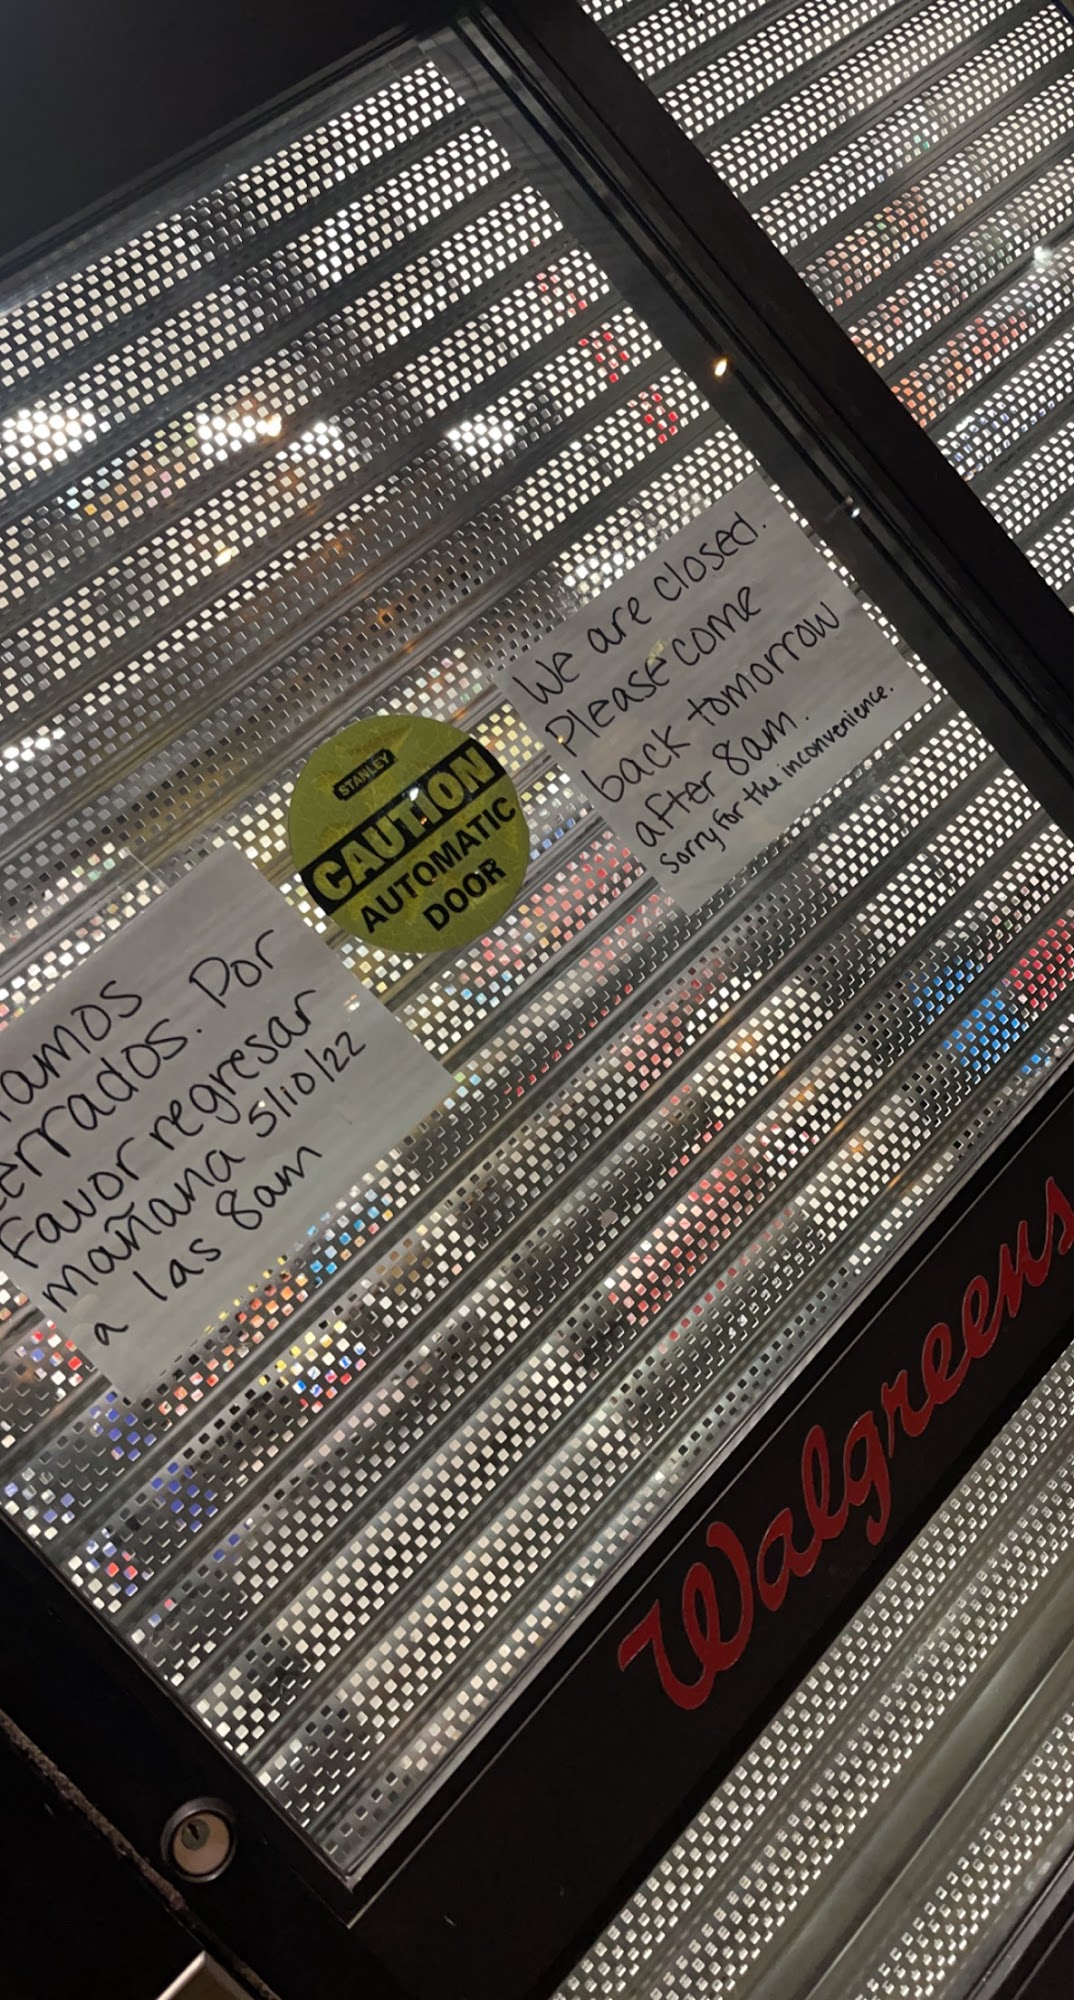 We are closed.
Please come
back tomorrow
after 8am.
Sorry for the inconvenience.
STANLEY
CAUTION
AUTOMATIC
DOOR
tamos
errados. Por
Favor regresar
mañana 5/10/22
a las 8am
Walgreens